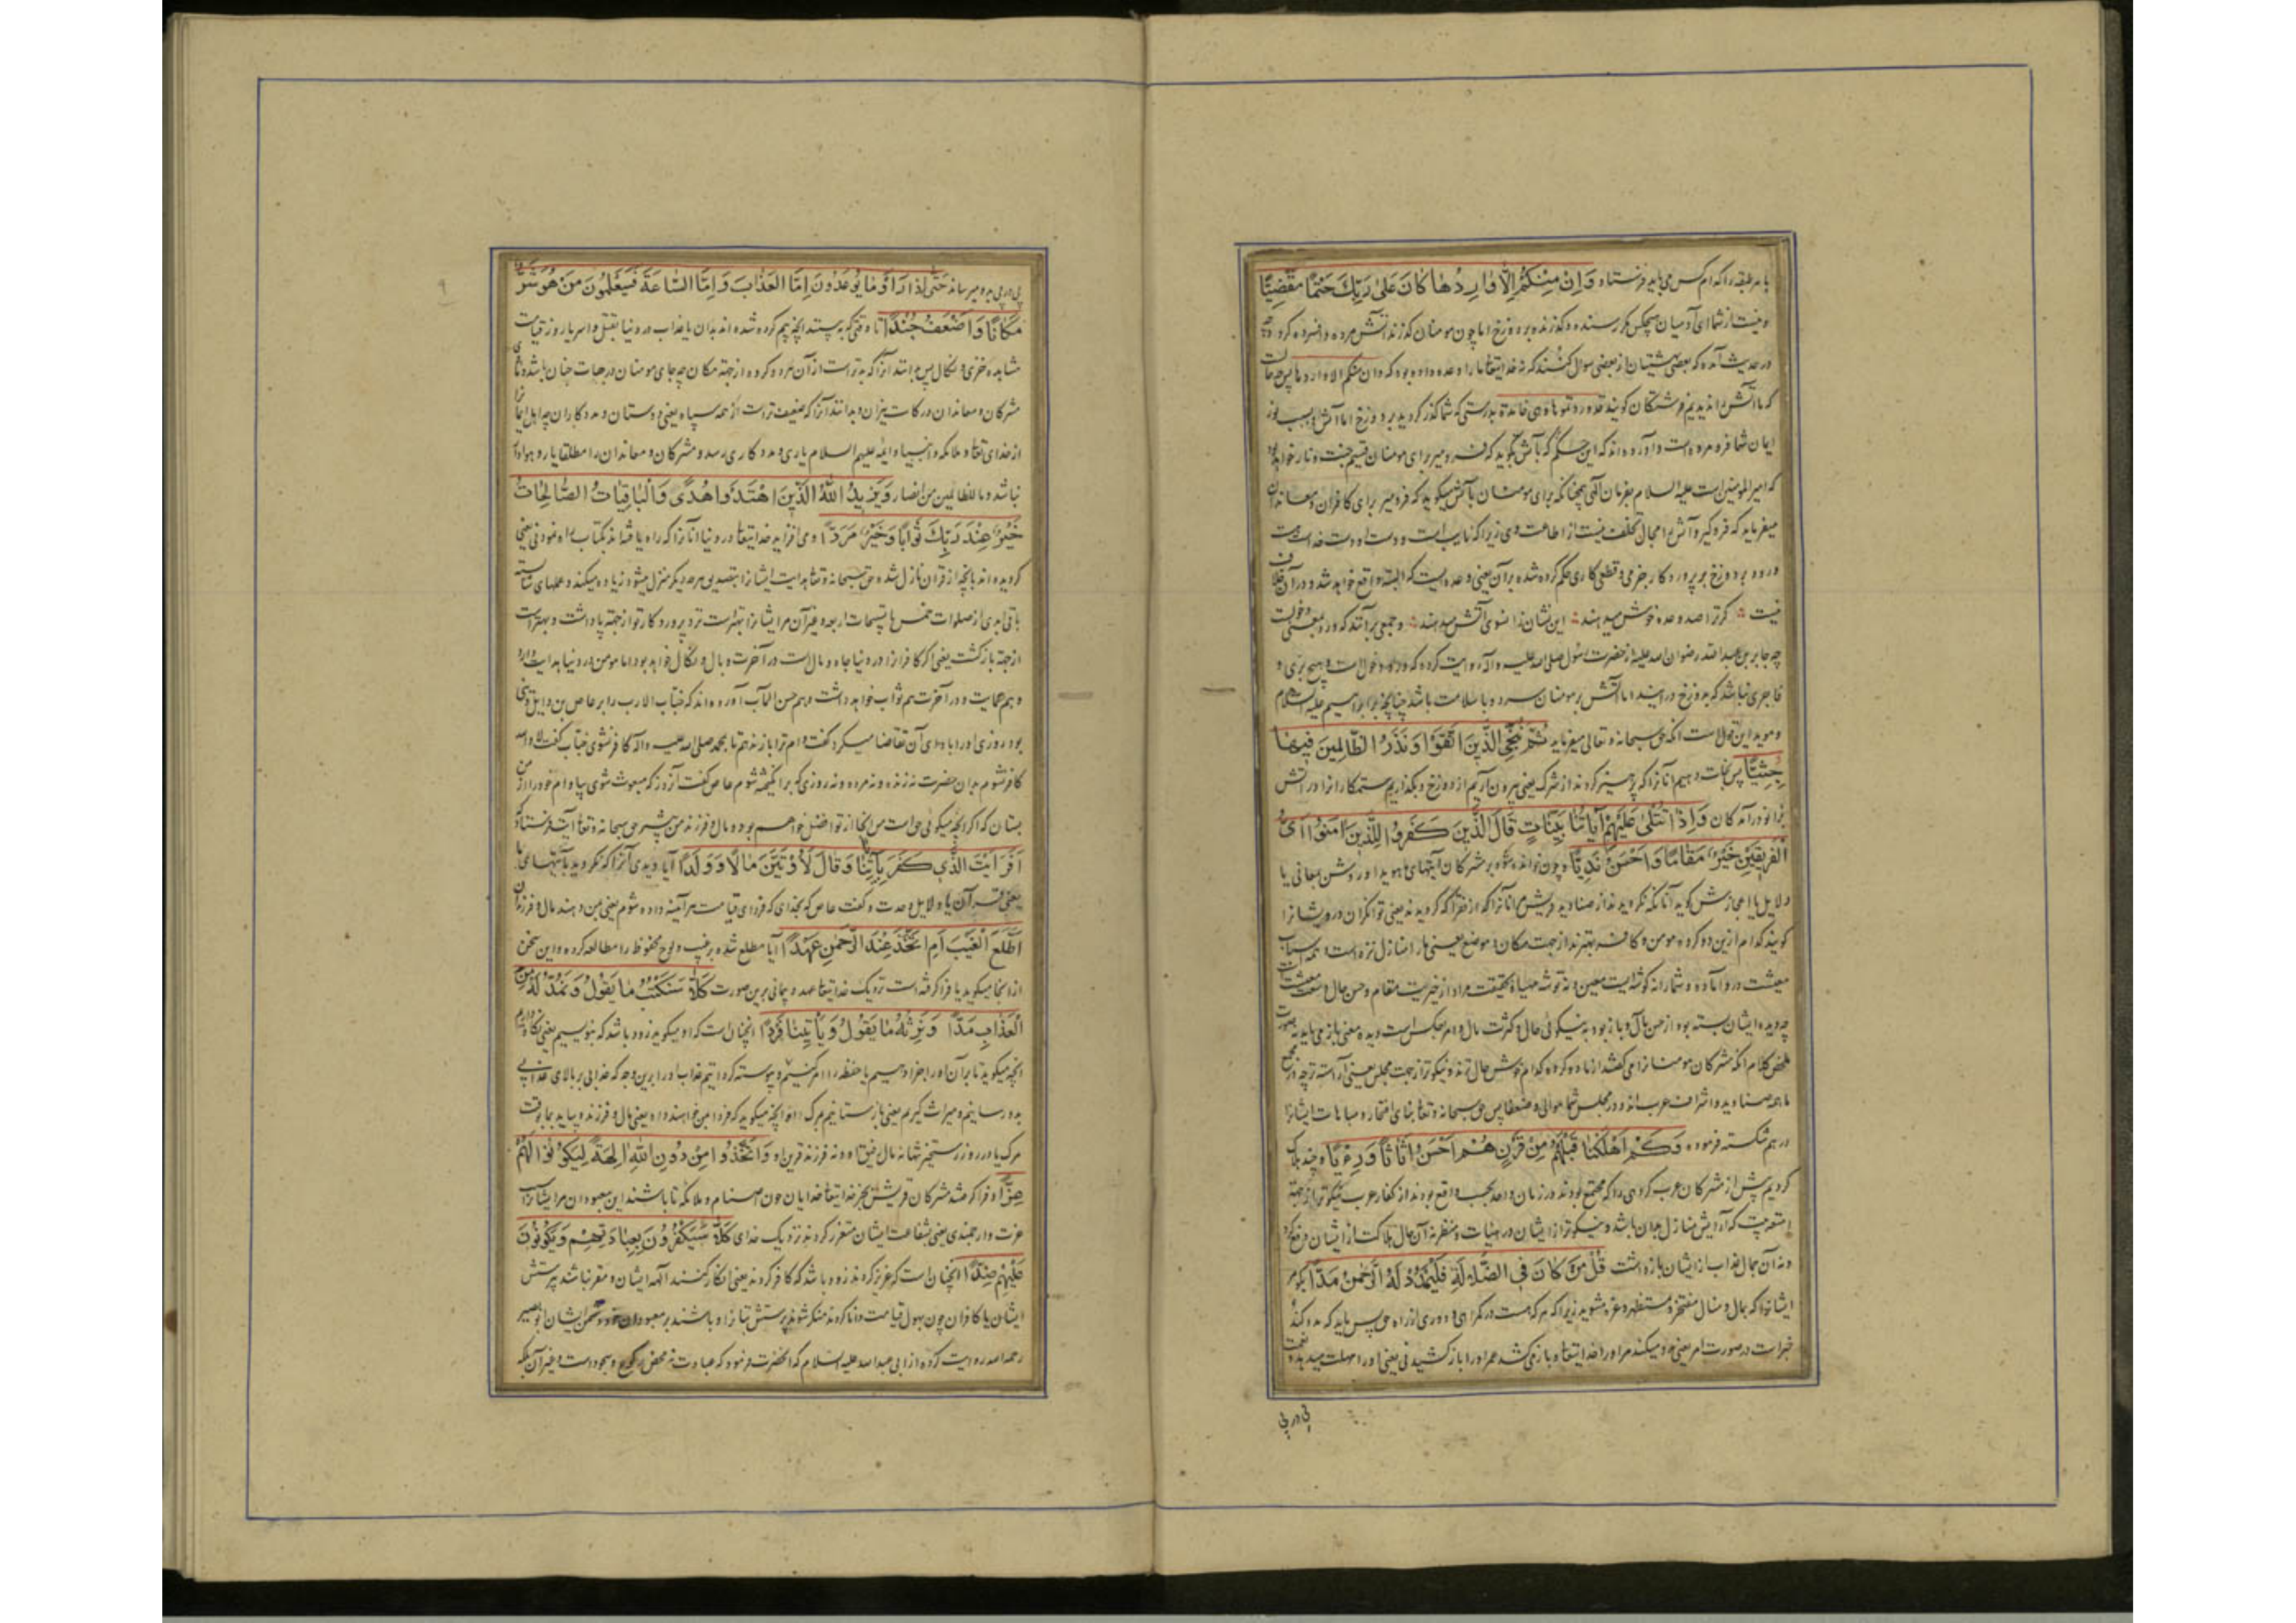 بهر طبقه را کدام کس می باید فرستاد وَاِنْ مِنْكُمْ اِلَّا وَارِدُهَا كَانَ عَلَى رَبِّكَ حَتْمًا مَقْضِيًّا
و نیست از شما ای آدمیان هیچکس مکر رسنده و کذرنده بدوزخ اما چون مومنان کذرند آتش مرده و افسرده کردد
در حدیث آمده که بعضی بهشتیان از بعضی سوال کنند که نه خدایتعا ما را وعده داده بود که وان منکم الا واردها پس
که ما آتش را ندیدیم فرشتکان کویند قد وردتموها وهی خامدة بدرستی که شما کذر کردید بر دوزخ اما آتش بسبب نور
ایمان شما فرو مرده است و آورده اند که این حکم که بآتش کوید که فرو میر برای مومنان قسیم جنت و نار خواهد بود
که امیر المومنین است علیه السلام بفرمان الهی همچنانکه برای مومنان بآتش میکوید که فرو میر برای کافران و معاندان
میفرماید که فرو کیر و آتش را مجال تخلف نیست از اطاعت وی زیرا که نایب است و دست او دست خداست
ورود بر دوزخ بر پروردکار جزمی و قطعی کاری حکم کرده شده بر آن یعنی وعده ایست که البته واقع خواهد شد و در آن خلاف
نیست کر ترا صد وعده خوش میدهند این نشان ذا سوی آتش میدهند و جمعی بر آنند که ورود بمعنی دخولست
چه جابر بن عبد الله رضوان الله علیه از حضرت رسول صلی الله علیه و آله روایت کرده که ورود دخول است و هیچ بری و
فاجری نباشد که بدوزخ در آیند اما آتش بر مومنان سرد و با سلامت باشد چنانچه بر ابراهیم علیه السلام
و موید این قول است آنکه حق سبحانه و تعالی میفرماید ثُمَّ نُنَجِّي الَّذِينَ اتَّقَوْا وَنَذَرُ الظَّالِمِينَ فِيهَا
جِثِيًّا پس نجات دهیم آنانرا که پرهیز کردند از شرک یعنی بیرون آریم از دوزخ و بکذاریم ستمکارانرا در آتش
بزانو درآمدکان وَاِذَا تُتْلَى عَلَيْهِمْ اٰيَاتُنَا بَيِّنَاتٍ قَالَ الَّذِينَ كَفَرُوا لِلَّذِينَ اٰمَنُوا اَيُّ
الْفَرِيقَيْنِ خَيْرٌ مَقَامًا وَاَحْسَنُ نَدِيًّا و چون خوانده شود بر مشرکان آیتهای هویدا و روشن معانی یا
دلایل یا اعجازش کویند آنانکه نکرویدند از صنادید قریش مر آنانرا که از فقرا که کرویدند یعنی توانکران درویشانرا
کویند کدام ازین دو کروه مومن و کافر بهترند از جهت مکان و موضع یعنی مارا منازل نزه است و همه اسباب
معیشت در و آماده و شما را نه کوشه ایست معین و نه توشه مهیا و بحقیقت مراد از خیریت مقام و حسن حال و سعت معیشت است
چه دیده ایشان بسته بود از حسن مآل و باز بود به نیکوئی حال و کثرت مال و امر بعکس است و دیده معنی باز می باید نه صورت
ملخص کلام آنکه مشرکان مومنانرا می کفتند از ما دو کروه کدام خوش حال ترند و نیکوتر از جهت مجلس یعنی آراسته تر چه در مجمع
ما همه صنادید و اشراف عرب اند و در مجلس شما موالی و ضعفا پس حق سبحانه و تعا بنای افتخار و مباهات ایشانرا
در هم شکسته فرموده وَكَمْ اَهْلَكْنَا قَبْلَهُمْ مِنْ قَرْنٍ هُمْ اَحْسَنُ اَثَاثًا وَرِءْيًا و چند هلاک
کردیم پیش از مشرکان عرب کروهی را که مجتمع بودند در زمان واحد بحسب واقع بودند از کفار عرب نیکوتر از جهت
امتعه بیت که آرایش منازل بدان باشد و نیکوتر از ایشان در هیئات و منظر نه آن مال هلاکت از ایشان دفع کرد
و نه آن جمال عذاب از ایشان باز داشت قُلْ مَنْ كَانَ فِي الضَّلَالَةِ فَلْيَمْدُدْ لَهُ الرَّحْمٰنُ مَدًّا بکو مر
ایشانرا که بمال و منال مفتخر و مستظهر و غره مشوید زیرا که هر که هست در کمراهی و دوری از راه حق پس باید که مدد کند
خبرات در صورت امر یعنی مدد میکند مر او را خدایتعا و باز می کشد عمر او را باز کشیدنی یعنی او را مهلت میدهد و نعمت
پی در پی
پی در پی بدو میرساند حَتَّى اِذَا رَاَوْا مَا يُوعَدُونَ اِمَّا الْعَذَابَ وَاِمَّا السَّاعَةَ فَسَيَعْلَمُونَ مَنْ هُوَ شَرٌّ
مَكَانًا وَاَضْعَفُ جُنْدًا تا وقتی که به بینند آنچه بیم کرده شده اند بدان یا عذاب در دنیا بقتل و اسر یا روز قیامت
مشاهده خزی و نکال پس بدانند آنرا که بدتر است از آن هر دو کروه از جهة مکان چه جای مومنان درجات جنان باشد و جای
مشرکان و معاندان درکات نیران و بدانند آنرا که ضعیف تر است از همه سپاه یعنی دوستان و مددکاران چه اهل ایمانرا
از خدای تعا و ملائکه و انبیا و ائمه علیهم السلام یاری و مددکاری رسد و مشرکان و معاندان را مطلقا یار و هوادار
نباشد و ما للظالمین من انصار وَيَزِيدُ اللّٰهُ الَّذِينَ اهْتَدَوْا هُدًى وَالْبَاقِيَاتُ الصَّالِحَاتُ
خَيْرٌ عِنْدَ رَبِّكَ ثَوَابًا وَخَيْرٌ مَرَدًّا و می افزاید خدایتعا در دنیا آنانرا که راه یافته اند بکتاب راه نمودنی یعنی
کرویده اند بآنچه از قران نازل شده حق سبحانه و تعا هدایت ایشانرا بتصدیق هر چه دیکر منزل میشود زیاده میکند و عملهای شایسته
باقی ابدی از صلوات خمس یا تسبیحات اربعه و غیر آن مر ایشانرا بهتر است نزد پروردکار تو از جهة پاداشت و بهتر است
از جهة بازکشت یعنی اکر کافرانرا در دنیا جاه و مال است در آخرت وبال و نکال خواهد بود اما مومن در دنیا هدایت دارد
و هم حمایت و در آخرت هم ثواب خواهد داشت و هم حسن المآب آورده اند که خباب الارت را بر عاص بن وایل دینی
بود روزی او را بادای آن تقاضا میکرد کفت وام ترا باز ندهم تا بمحمد صلی الله علیه و آله کافر نشوی خباب کفت لا والله
کافر نشوم بدان حضرت نه زنده و نه مرده و نه روزی که برانکیخته شوم عاص کفت آنروز که مبعوث شوی بیا و وام خود را از من
بستان که اکر آنچه میکوئی حق است من آنجا از تو افضل خواهم بود و مال و فرزند من بیشتر حق سبحانه و تعا آیت فرستاد
اَفَرَاَيْتَ الَّذِي كَفَرَ بِاٰيَاتِنَا وَقَالَ لَاُوتَيَنَّ مَالًا وَوَلَدًا آیا دیدی آنرا که نکروید بآیتهای ما
یعنی قرآن یا دلایل وحدت و کفت عاص که بخدای که فردای قیامت هر آینه داده شوم یعنی بمن دهند مال و فرزندان
اَطَّلَعَ الْغَيْبَ اَمِ اتَّخَذَ عِنْدَ الرَّحْمٰنِ عَهْدًا آیا مطلع شده بر غیب و لوح محفوظ را مطالعه کرده و این سخن
از آنجا میکوید یا فرا کرفته است نزدیک خدایتعا عهد و پیمانی برین صورت كَلَّا سَنَكْتُبُ مَا يَقُولُ وَنَمُدُّ لَهُ مِنَ
الْعَذَابِ مَدًّا وَنَرِثُهُ مَا يَقُولُ وَيَاْتِينَا فَرْدًا آنچنان است که او میکوید زود باشد که بنویسیم یعنی نکاه داریم
آنچه میکوید تا بر آن او را جزا دهیم یا حفظه را امر کنیم و پیوسته کردانیم عذاب او را برین وجه که عذابی بر بالای عذابی
بدو رسانیم و میراث کیریم یعنی باز ستانیم بمرک او آنچه میکوید که فردا بمن خواهند داد یعنی مال و فرزند و بیاید بما بوقت
مرک یا در روز رستخیز تنها نه مال رفیق او و نه فرزند قرین او وَاتَّخَذُوا مِنْ دُونِ اللّٰهِ اٰلِهَةً لِيَكُونُوا لَهُمْ
عِزًّا و فرا کرفتند مشرکان قریش بجز خدایتعا خدایان چون اصنام و ملائکه تا باشند این معبودان مر ایشانرا
عزت و ارجمندی یعنی بشفاعت ایشان متعزز کردند نزدیک خدای كَلَّا سَيَكْفُرُونَ بِعِبَادَتِهِمْ وَيَكُونُونَ
عَلَيْهِمْ ضِدًّا آنچنان است که عزیز کردند زود باشد که کافر کردند یعنی انکار کنند آلهه ایشان و مقر نباشند پرستش
ایشان یا کافران چون بهول قیامت دانا کردند منکر شوند پرستش بتانرا و باشند بر معبودان خود دشمن ایشان ابو بصیر
رحمه الله روایت کرده از ابی عبد الله علیه السلام که آنحضرت فرمود که عبادت نه محض رکوع و سجود است و غیر آن بلکه